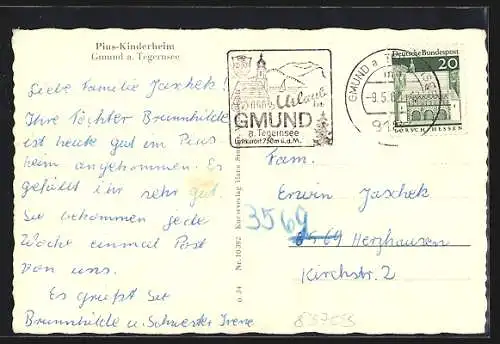 Pius-Kinderheim
Gmund a. Tegernsee
Liebe Familie Jaschek!
Ihre Töchter Brunnhilde
ist heute gut im Pius-
heim angekommen. Es
gefällt ihr sehr gut.
Sie bekommen jede
Woche einmal Post
von uns.
Es grüßt Sie
Brunnhilde u. Schwester Irene
Urlaub
in
GMUND
a. Tegernsee
Luftkurort 750m ü.d.M.
GMUND a.
-9.5.6
Deutsche Bundespost
20
LORSCH/HESSEN
Fam.
Erwin Jaschek
3569
Herzhausen
Kirchstr. 2